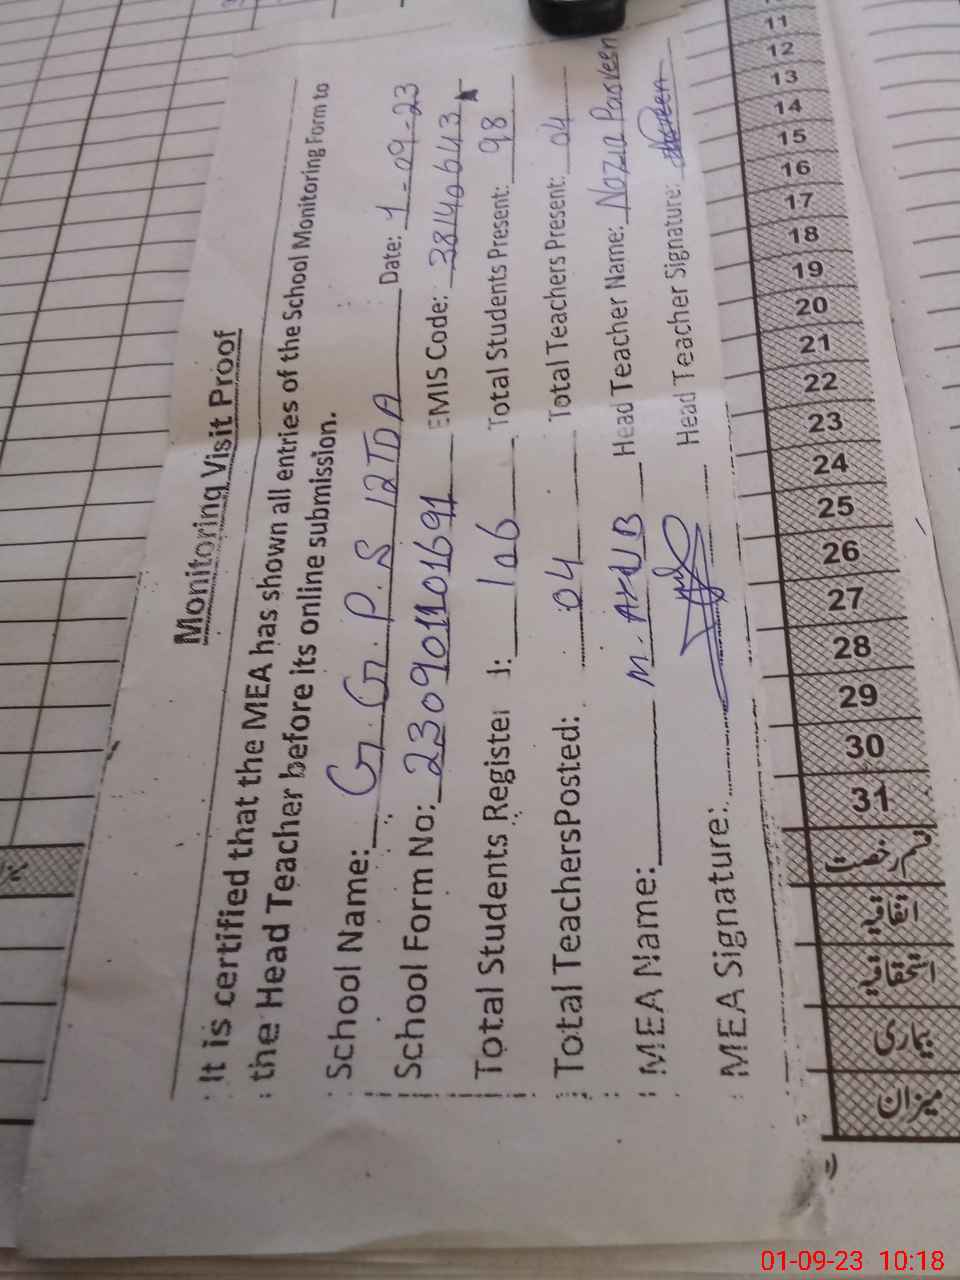 Monitoring Visit Proof
It is certified that the MEA has shown all entries of the School Monitoring Form to
the Head Teacher before its online submission.
School Name: G.G.P.S 12TDA Date: 1-09-23
School Form No: 230901101691 EMIS Code: 38140643
Total Students Register d: 106 Total Students Present: 98
Total TeachersPosted: 04 Total Teachers Present: 04
MEA Name: M. AYUB Head Teacher Name: Nazia Parveen
MEA Signature: Head Teacher Signature:
11
12
13
14
15
16
17
18
19
20
21
22
23
24
25
26
27
28
29
30
31
قسم رخصت
اتفاقیہ
استحقاقیہ
بیماری
میزان
01-09-23 10:18